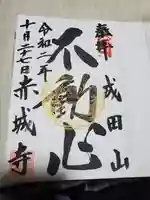 奉拝
成田山
不動尊
令和二年
十月二十七日
赤城寺